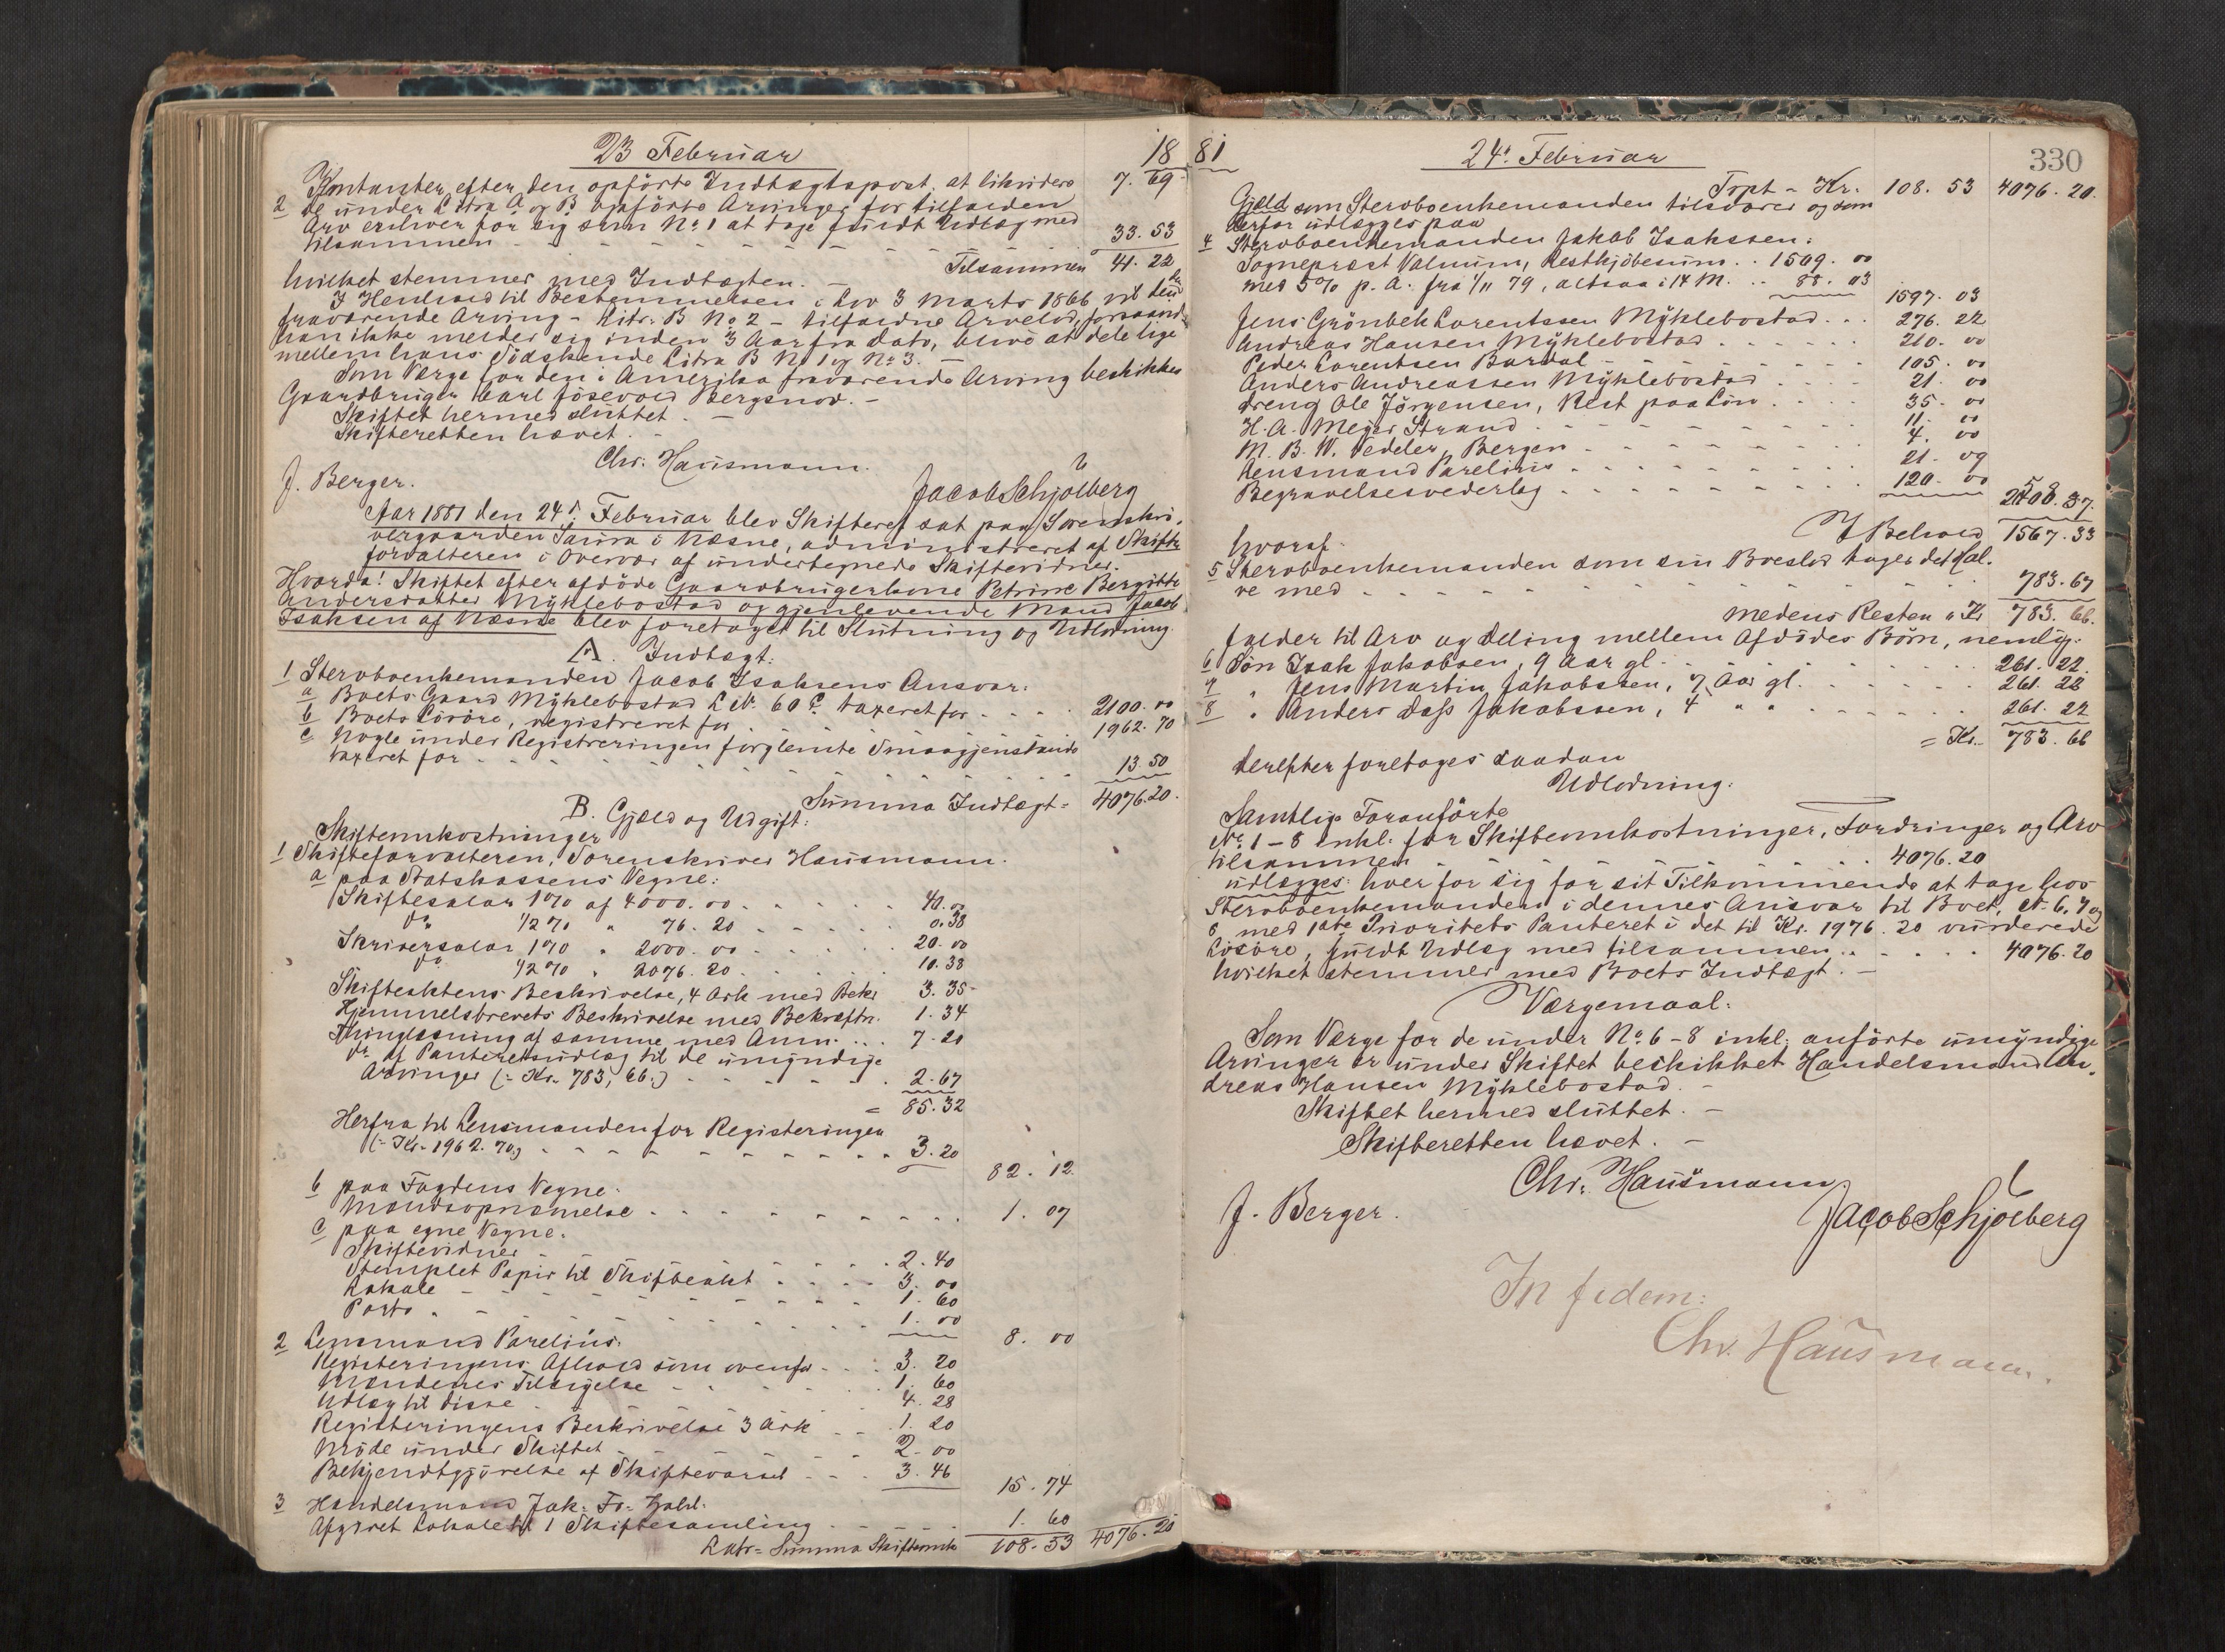 23 Februar
18
Kontanter efter den opförte Indtægtspost, at likvidere 7. 69
2 de under Litra A og B opförte Arvinger for tilfalden
Arv enhver for sig som No 1 at tage fuldt Udlæg med
tilsammen 33. 53
Tilsammen 41. 22
hvilket stemmer med Indtægten.
I Henhold til Bestemmelsen i Lov 3 Marts 1866 vil den
fraværende Arving - Litr. B No 2 - tilfaldne Arvelod, forsaavidt
han ikke melder sig inden 3 Aar fra dato, blive at dele lige
mellem hans Södskende Litra B No 1 og No 3.
Som Værge for den i Amerika fraværende Arving beskikkes
Gaardbruger Carl Josevold Bergsnov. -
Skiftet hermed sluttet. -
Skifteretten hævet. -
Chr. Hausmann.
J. Berger. Jacob Schjølberg
Aar 1881 den 24d. Februar blev Skifteret sat paa Sorenskri-
vergaarden Saura i Næsne, administreret af Skifte
forvalteren i Overvær af undertegnede Skiftevidner.
Hvorda! Skiftet efter afdöde Gaardbrugerkone Petrine Bergitte
Andersdatter Mÿklebostad og gjenlevende Mand Jacob
Isaksen af Næsne blev foretaget til Slutning og Udlodning.
A. Indtægt:
1 Sterboenkemanden Jacob Isaksens Ansvar:
a Boets Gaard Mÿklebostad L No 60 c. taxeret for 2100. 00
b Boets Lösöre, registreret for 1962. 70
c Nogle under Registreringen forglemte Smaagjenstande
taxeret for 13. 50
Summa Indtægt = 4076. 20.
B. Gjæld og Udgift:
Skifteomkostninger
1 Skifteforvalteren, Sorenskriver Hausmann.
a paa Statskassens Vegne:
Skiftesalær 1% af 4000. 00 40. 00
do 1/2 % " 76. 20 0. 38
Skriversalær 1% " 2000. 00 20. 00
do 1/2 % " 2076. 20 10. 38
Skifteaktens Beskrivelse, 4 Ark med Bekr 3. 35
Hjemmelsbrevets Beskrivelse med Bekræftn. 1. 34
Thinglæsning af samme med Anm. 7. 20
do af Panteretsudlæg til de umÿndige
Arvinger (: Kr. 783, 66:) 2. 67
= 85. 32
Herfra til Lensmanden for Registeringen
(: Kr. 1962. 70:) 3. 20
82. 12.
b paa Fogdens Vegne:
Mandsopnævnelse 1. 07
c paa egne Vegne:
Skiftevidner 2. 40
Stemplet Papir til Skifteakt 3. 00
Lokale 1. 60
Porto 1. 00
8. 00
2 Lensmand Parelius:
Registeringens Afhold som ovenfor 3. 20
Mændenes Tilsigelse 1. 60
Udlæg til disse 4. 28
Registeringens Beskrivelse 3 Ark 1. 20
Möde under Skiftet 2. 00
Bekjendtgjörelse af Skiftevarsel 3. 46
15. 74
3 Handelsmand Jak. Fr. Zahl.
Afgivet Lokale til 1 Skiftesamling 1. 60
Latr = Summa Skifteomk 108. 53 4076. 20
81
24d. Februar
330
Trpt - Kr. 108. 53 4076. 20.
Gjæld som Sterboenkemanden tilsvarer og som
derfor udlægges paa
4 Sterboenkemanden Jakob Isaksen:
Sognepræst Valnum, Restkjöbesum 1509. 00
med 5% p. A. fra 1/11 79, altsaa i 14 M. 88. 03
1597. 03
Jens Grönbek Lorentssen Mÿklebostad 276. 22
Andreas Hansen Mÿklebostad 210. 00
Peder Lorentsen Bardal 105. 00
Anders Andreassen Mÿklebostad 21. 00
dreng Ole Jörgensen, Rest paa Lön 35. 00
H. A. Meyer Strand 11. 00
M. B. W. Vedeler, Bergen 4. 00
Lensmand Parelius 21. 09
Begravelsesvederlag 120. 00
2508. 37.
I Behold 1567. 33
hvoraf
5 Sterboenkemanden som sin Boeslod tager det Hal-
ve med 783. 67
medens Resten " Kr 783. 66.
falder til Arv og Deling mellem Afdödes Börn, nemlig:
6 Sön Isak Jakobsen, 9 Aar gl. 261. 22.
7 " Jens Martin Jakobssen, 7 Aar gl. 261. 22
8 " Anders Dass Jakobssen, 4 " " 261. 22
= Kr. 783. 66
derefter foretoges saadan
Udlodning:
Samtlige Foranförte
No 1 - 8 inkl. for Skifteomkostninger, Fordringer og Arv
tilsammen 4076. 20
udlægges: hver for sig for sit Tilkommende at tage hos
Sterboenkemanden i dennes Ansvar til Boet, No 6, 7 og
8 med 1ste Prioritets Panteret i det til Kr. 1976. 20 vurderede
Lösöre, fuldt Udlæg med tilsammen 4076. 20
hvilket stemmer med Boets Indtægt. -
Værgemaal:
Som Værge for de under No 6 - 8 inkl. anförte umÿndige
Arvinger er under Skiftet beskikket Handelsmand An-
dreas Hansen Mÿklebostad. -
Skiftet hermed sluttet. -
Skifteretten hævet. -
Chr. Hausmann
J. Berger. Jacob Schjølberg
In fidem:
Chr. Hausmann.